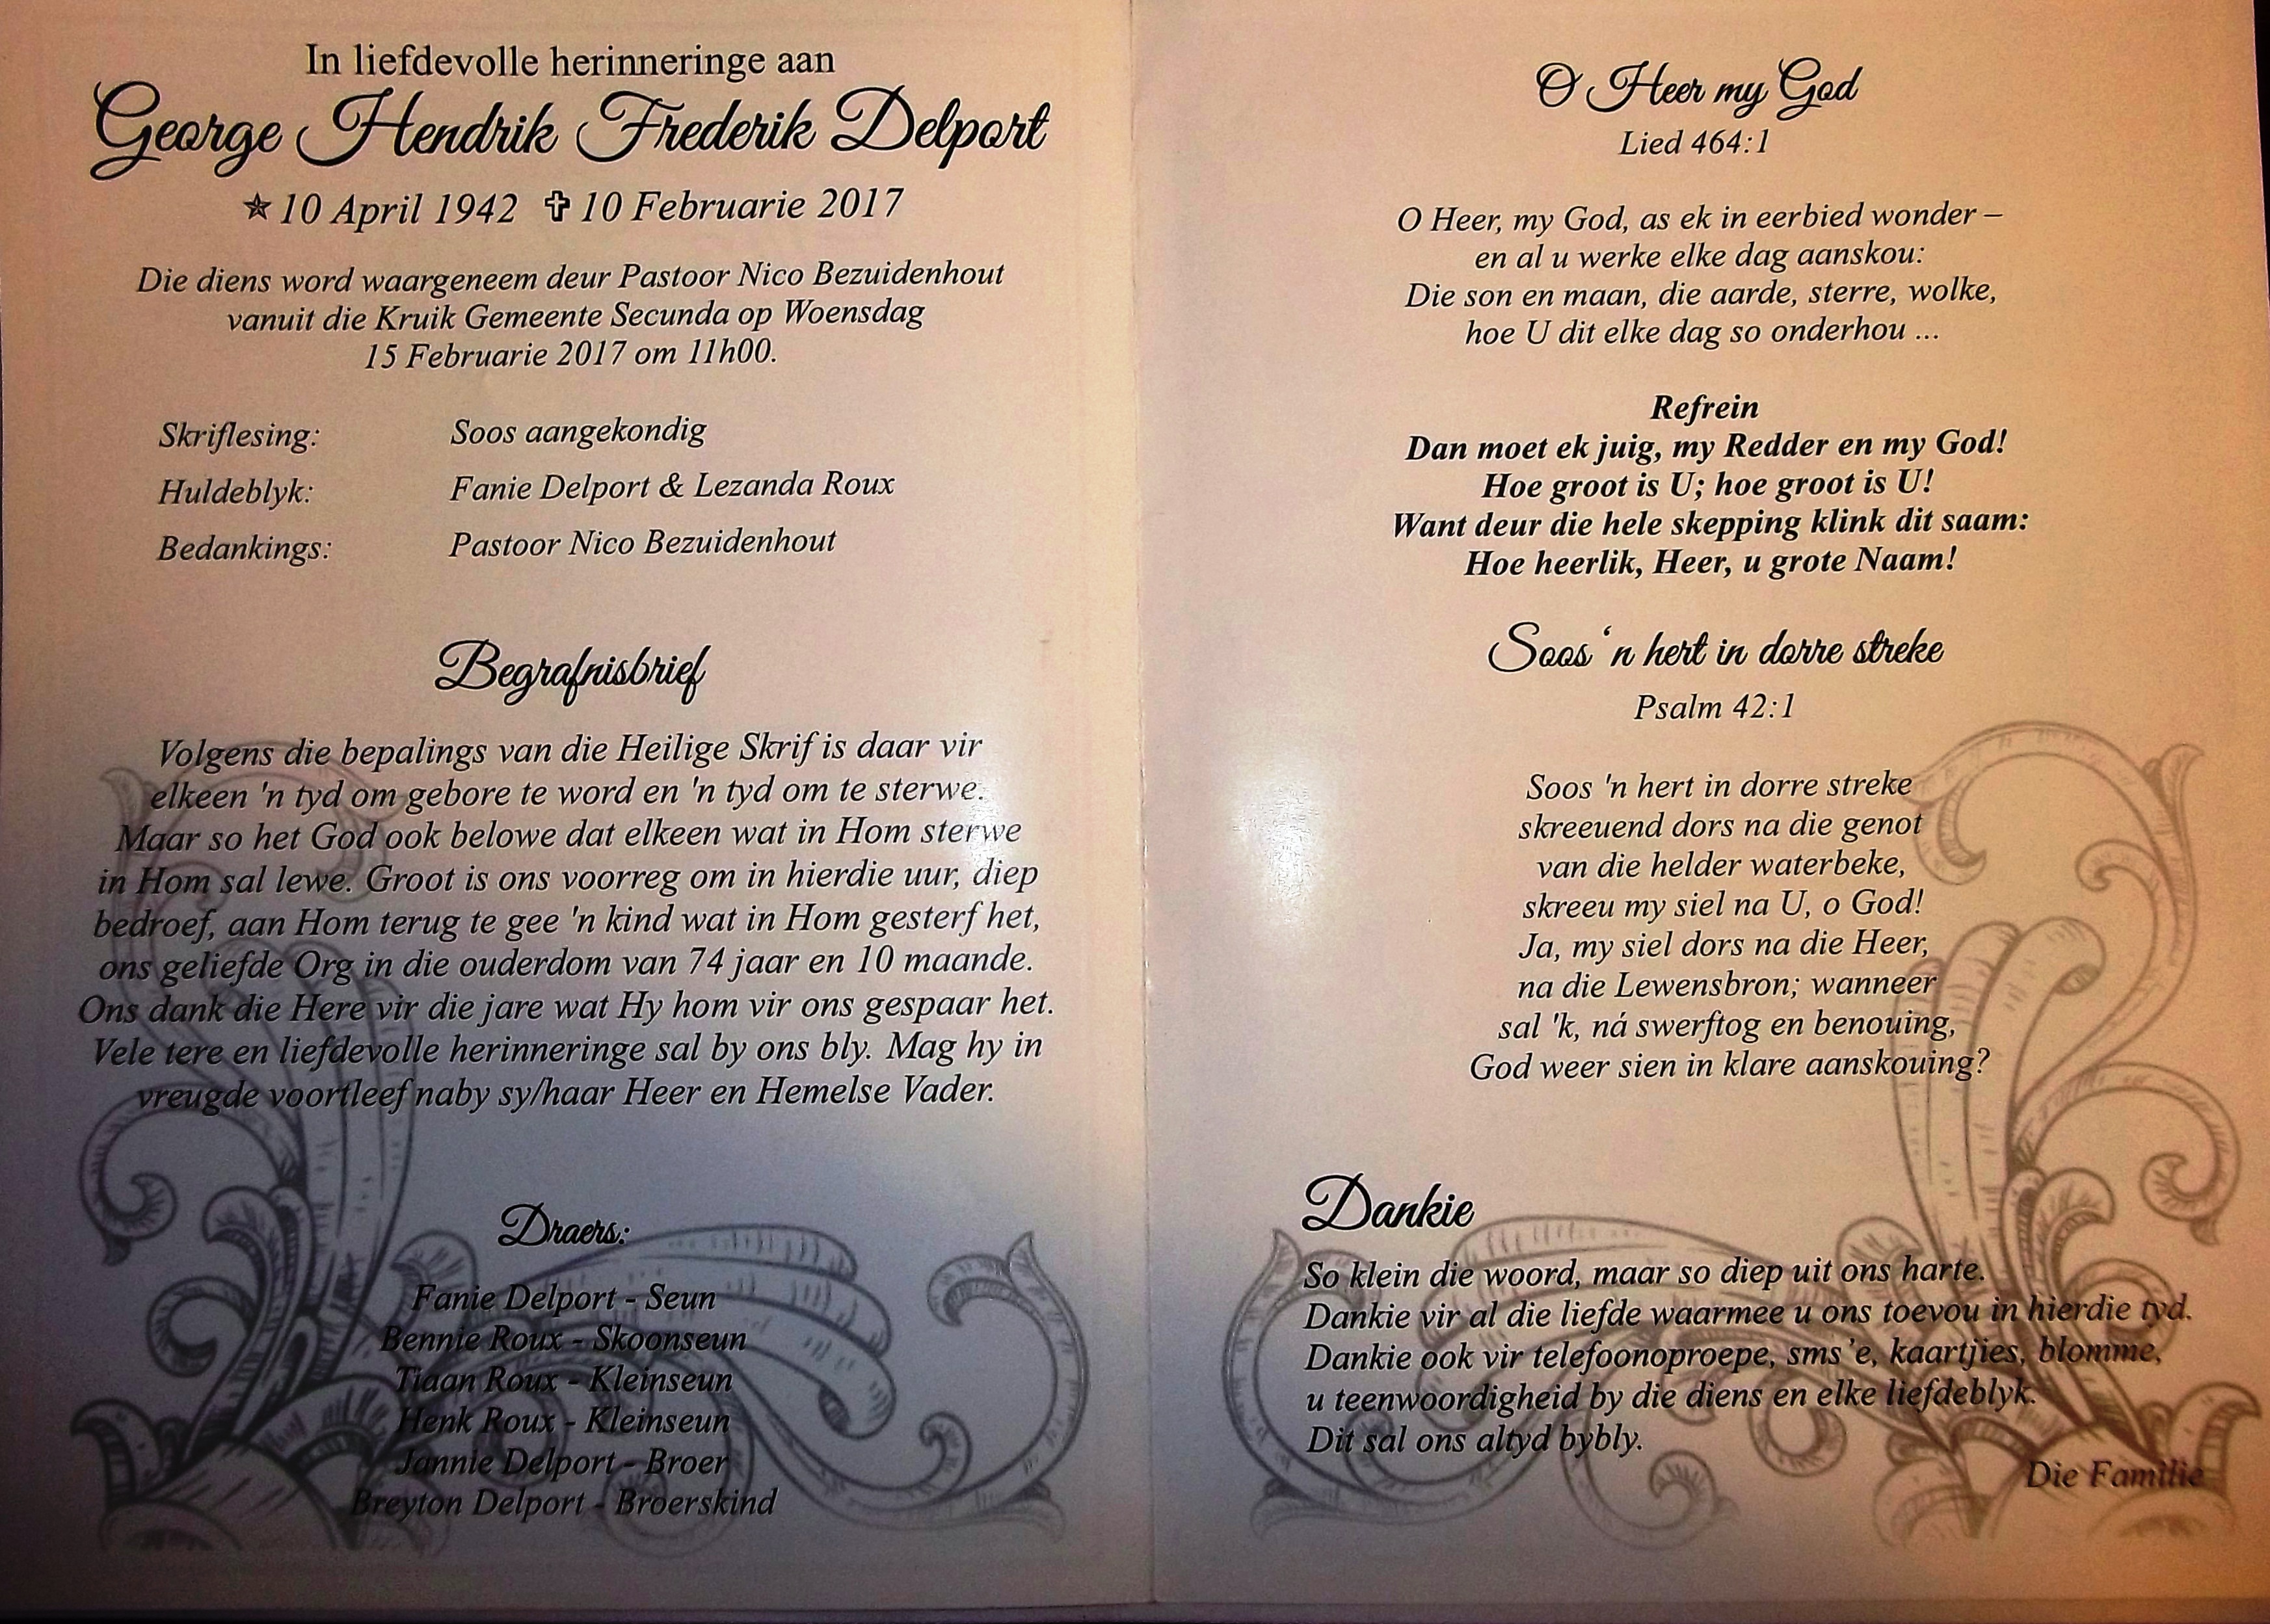 In liefdevolle herinneringe aan
George Hendrik Frederik Delport
✯10 April 1942 ✞10 Februarie 2017
Die diens word waargeneem deur Pastoor Nico Bezuidenhout
vanuit die Kruik Gemeente Secunda op Woensdag
15 Februarie 2017 om 11h00.
Skriflesing: Soos aangekondig
Huldeblyk: Fanie Delport & Lezanda Roux
Bedankings: Pastoor Nico Bezuidenhout
Begrafnisbrief
Volgens die bepalings van die Heilige Skrif is daar vir
elkeen 'n tyd om gebore te word en 'n tyd om te sterwe.
Maar so het God ook belowe dat elkeen wat in Hom sterwe
in Hom sal lewe. Groot is ons voorreg om in hierdie uur, diep
bedroef, aan Hom terug te gee 'n kind wat in Hom gesterf het,
ons geliefde Org in die ouderdom van 74 jaar en 10 maande.
Ons dank die Here vir die jare wat Hy hom vir ons gespaar het.
Vele tere en liefdevolle herinneringe sal by ons bly. Mag hy in
vreugde voortleef naby sy/haar Heer en Hemelse Vader.
Draers:
Fanie Delport - Seun
Bennie Roux - Skoonseun
Tiaan Roux - Kleinseun
Henk Roux - Kleinseun
Jannie Delport - Broer
Breyton Delport - Broerskind
O Heer my God
Lied 464:1
O Heer, my God, as ek in eerbied wonder –
en al u werke elke dag aanskou:
Die son en maan, die aarde, sterre, wolke,
hoe U dit elke dag so onderhou ...
Refrein
Dan moet ek juig, my Redder en my God!
Hoe groot is U; hoe groot is U!
Want deur die hele skepping klink dit saam:
Hoe heerlik, Heer, u grote Naam!
Soos ‘n hert in dorre streke
Psalm 42:1
Soos 'n hert in dorre streke
skreeuend dors na die genot
van die helder waterbeke,
skreeu my siel na U, o God!
Ja, my siel dors na die Heer,
na die Lewensbron; wanneer
sal 'k, ná swerftog en benouing,
God weer sien in klare aanskouing?
Dankie
So klein die woord, maar so diep uit ons harte.
Dankie vir al die liefde waarmee u ons toevou in hierdie tyd.
Dankie ook vir telefoonoproepe, sms’e, kaartjies, blomme,
u teenwoordigheid by die diens en elke liefdeblyk.
Dit sal ons altyd bybly.
Die Familie